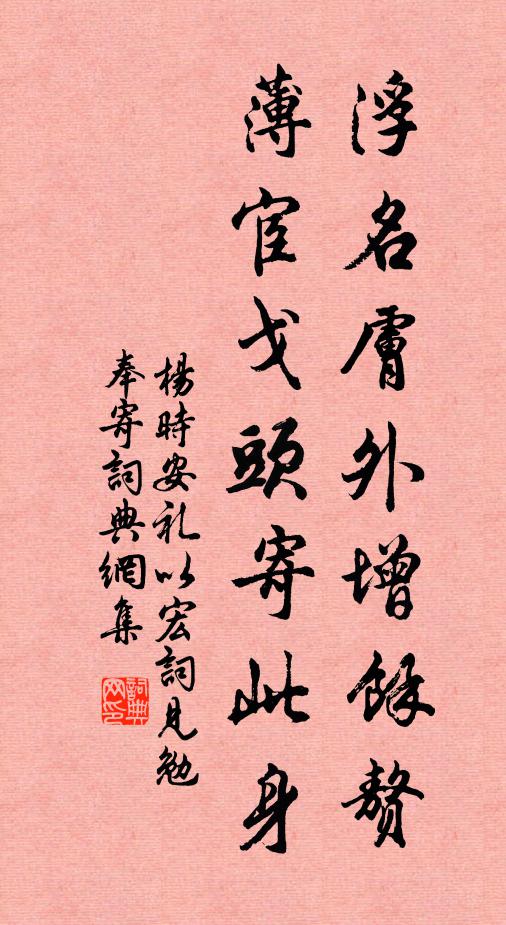 浮名膚外增餘贅
薄宦戈頭寄此身
楊時安礼以宏詞見勉
奉寄詞典網集
詞典
网印